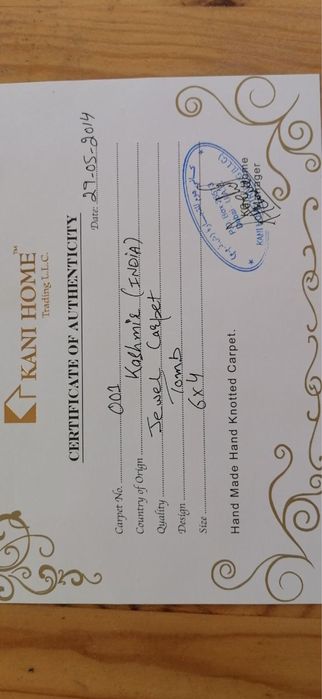 KANI HOME™
Trading L.L.C.
CERTIFICATE OF AUTHENTICITY
Date: 29-05-2014
Carpet No. 001
Country of Orign Kashmir (INDIA)
Quality Jewel Carpet
Design Tomb
Size 6x4
Hand Made Hand Knotted Carpet.
Kani Home
Manager